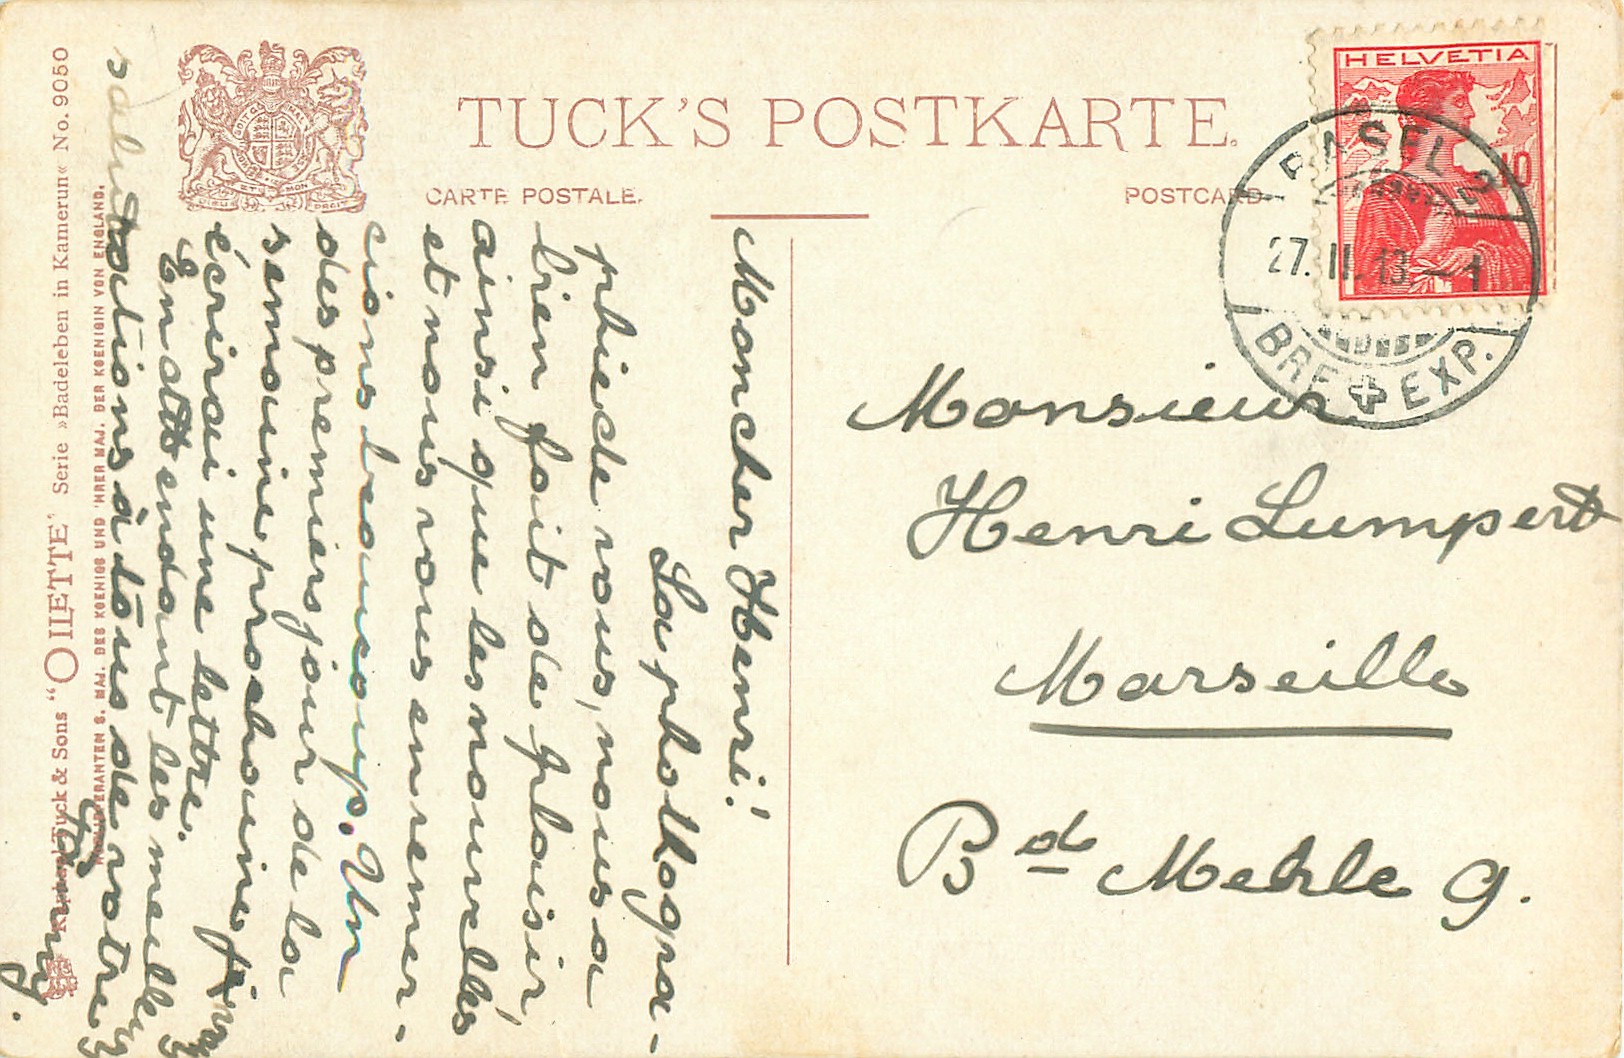 TUCK'S POSTKARTE.
CARTE POSTALE.
POSTCARD
HELVETIA
10
BASEL 2
27. II. 13 – 1
BRF EXP.
Monsieur
Henri Lumpert
Marseille
Bd Merle 9.
Mon cher Henri!
La photogra-
phie de vous, nous a
bien fait de plaisir,
ainsi que les nouvelles
et nous vous en remer-
cions beaucoup. Un
des premiers jour de la
semaine prochaine
écrirai une lettre.
En attendant les meilleurs
salutations à tous de votre
Fanny.
Raphael Tuck & Sons "OILETTE" Serie »Badeleben in Kamerun« No. 9050
HOFLIEFERANTEN S. MAJ. DES KOENIGS UND IHRER MAJ. DER KOENIGIN VON ENGLAND.
DIEU ET MON DROIT